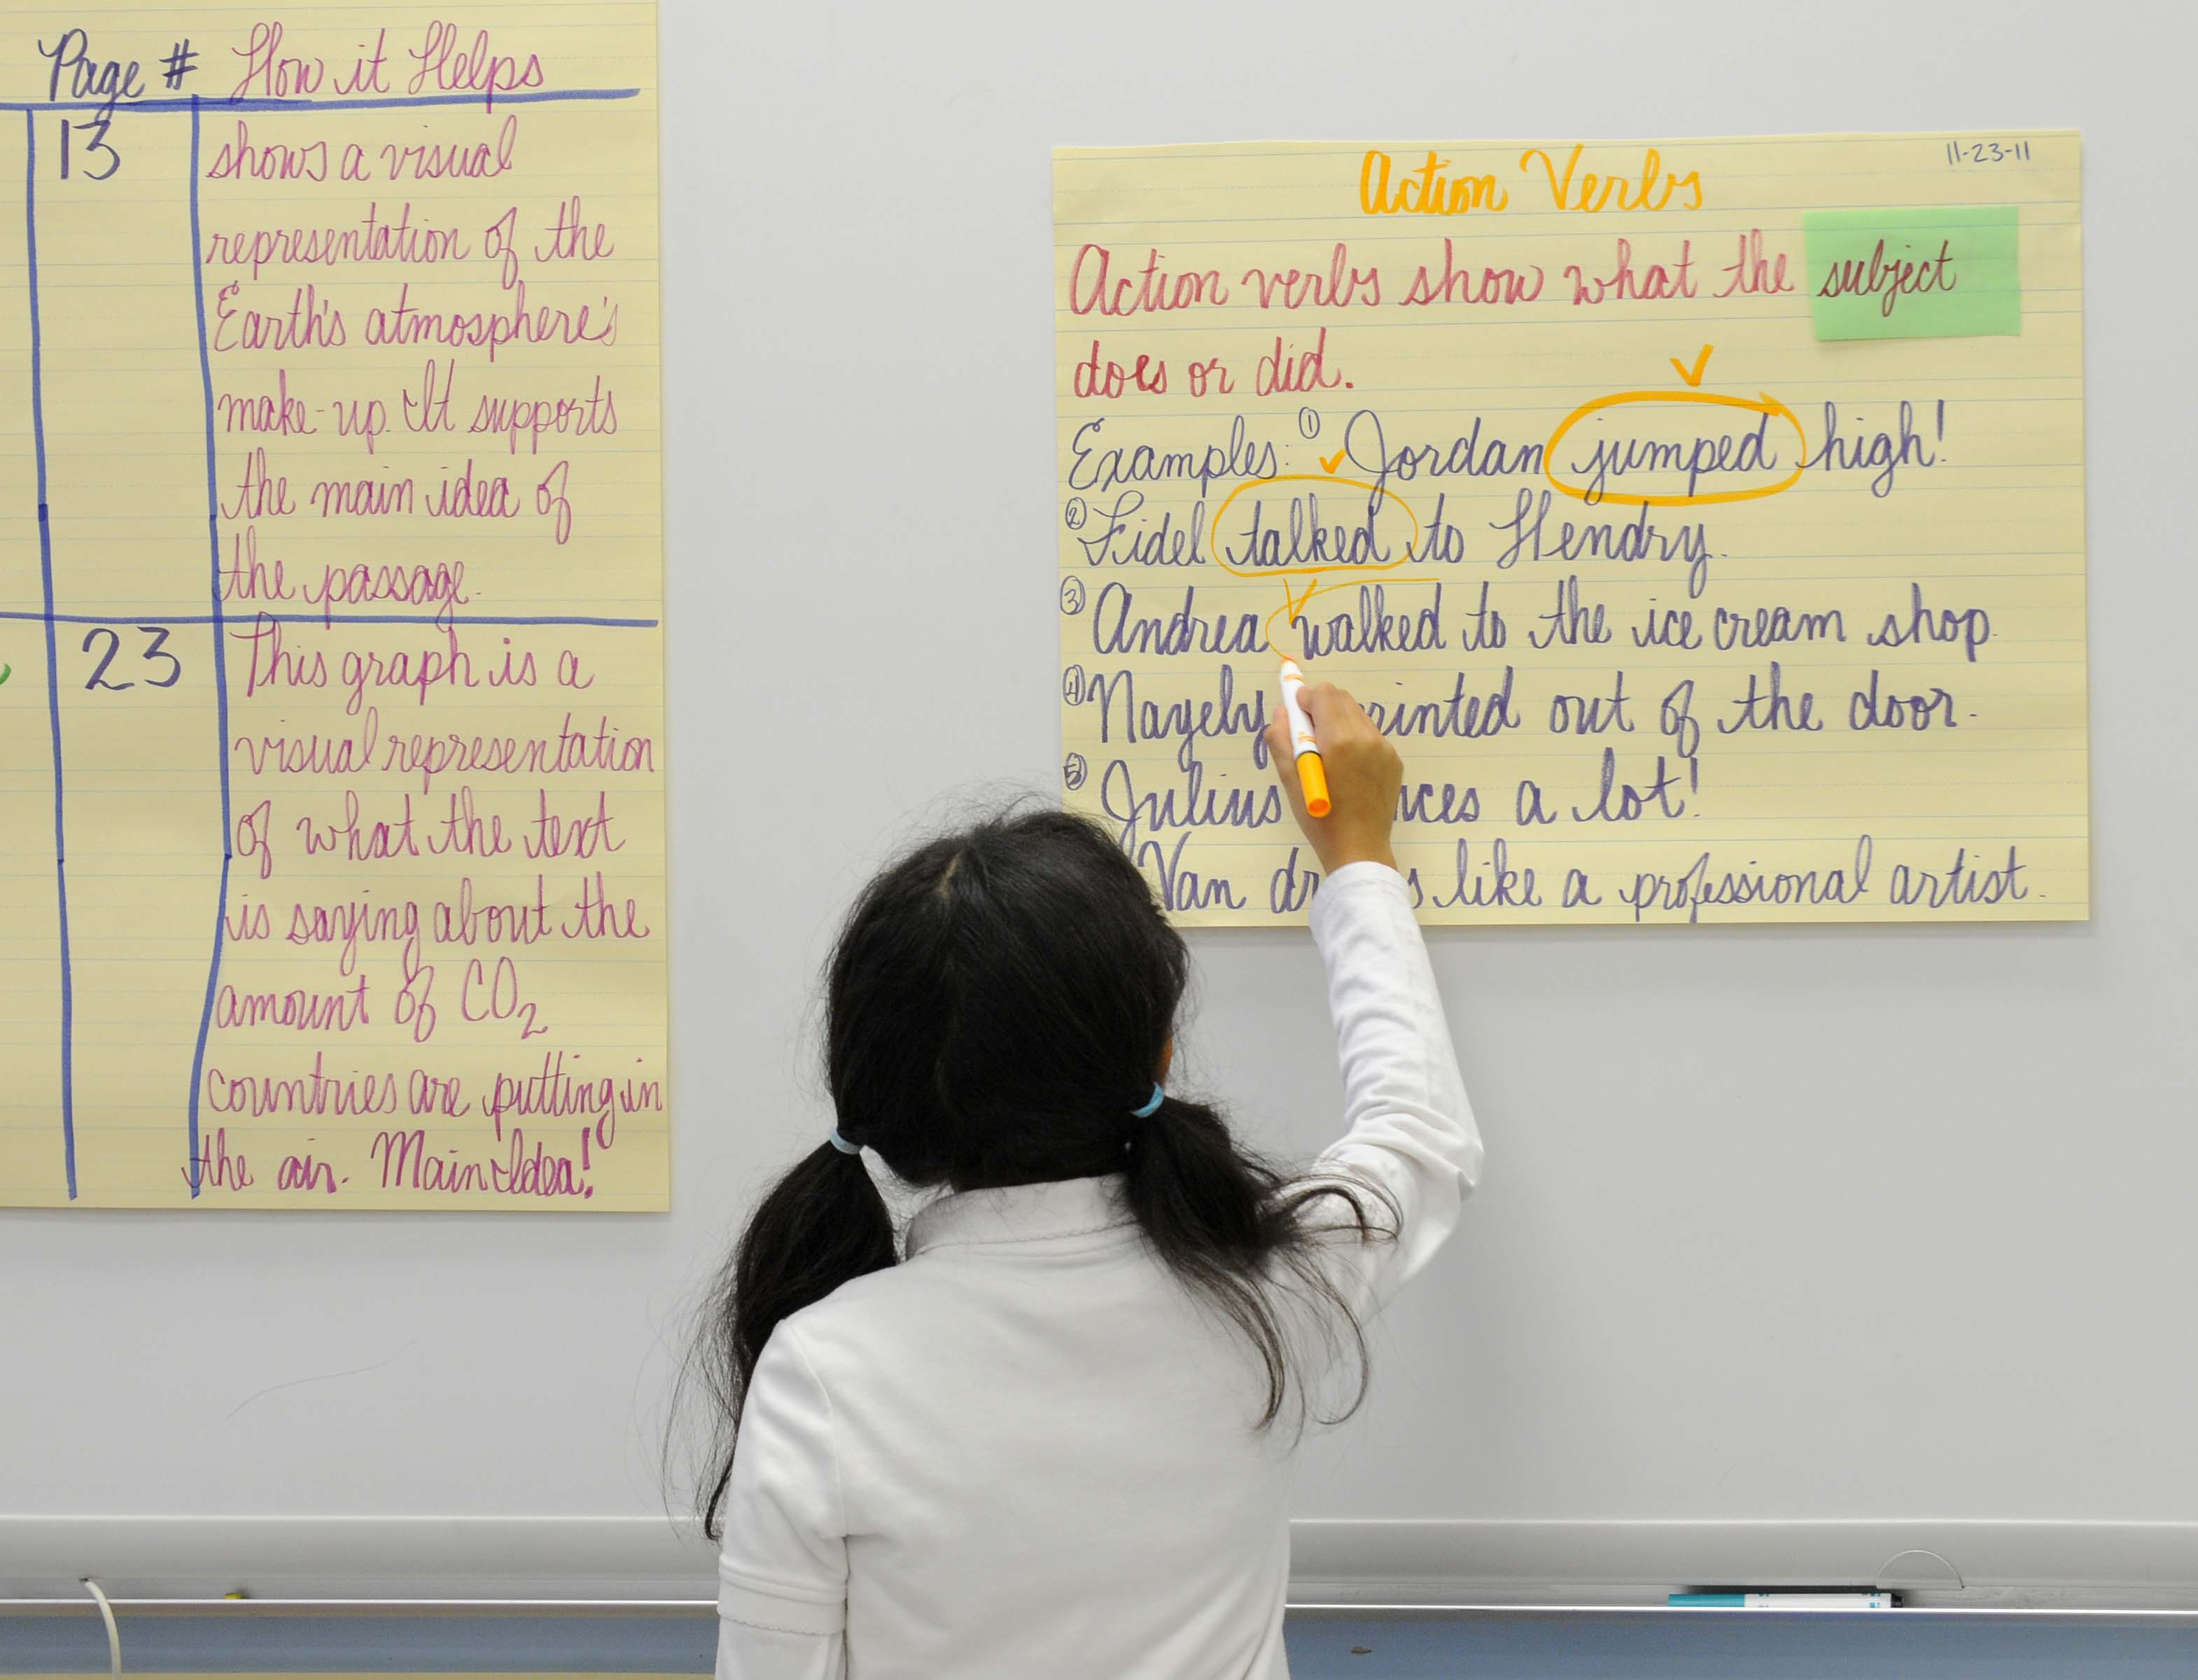 Page # How it Helps
13 shows a visual
representation of the
Earth's atmosphere's
make-up. It supports
the main idea of
the passage.
23 This graph is a
visual representation
of what the text
is saying about the
amount of CO₂
countries are putting in
the air. Main Idea!
11-23-11
Action Verbs
Action verbs show what the subject
does or did.
Examples: ① Jordan jumped high!
② Fidel talked to Hendry.
③ Andrea walked to the ice cream shop.
④ Nayely out of the door.
⑤ Julius a lot!
Van like a professional artist.